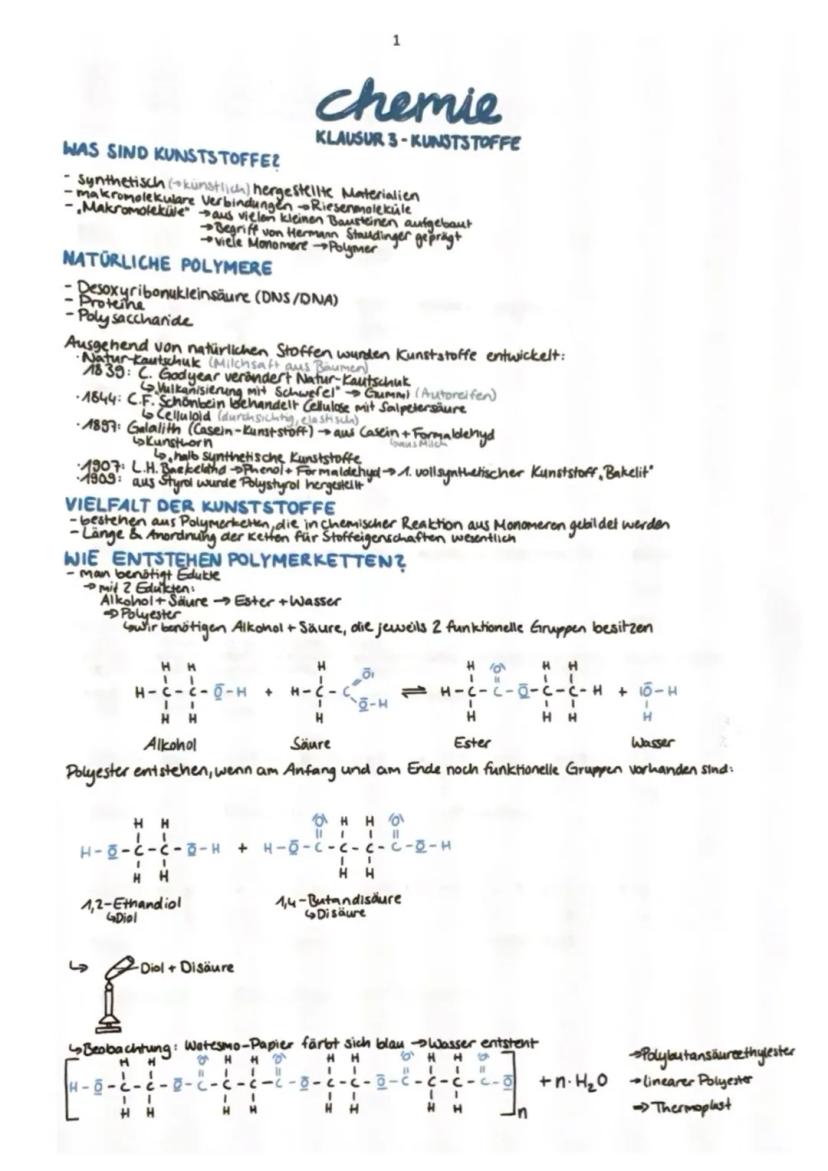 1
chemie
KLAUSUR 3 - KUNSTSTOFFE
WAS SIND KUNSTSTOFFE?
- synthetisch (→künstlich) hergestellte Materialien
- makromolekulare Verbindungen → Riesenmoleküle
- „Makromoleküle" → aus vielen kleinen Bausteinen aufgebaut
→ Begriff von Hermann Staudinger geprägt
→ viele Monomere → Polymer
NATÜRLICHE POLYMERE
- Desoxyribonukleinsäure (DNS/DNA)
- Proteine
- Polysaccharide
Ausgehend von natürlichen Stoffen wurden Kunststoffe entwickelt:
· Natur-Kautschuk (Milchsaft aus Bäumen)
1839: C. Godyear verändert Natur-Kautschuk
↳ „Vulkanisierung mit Schwefel" → Gummi (Autoreifen)
· 1844: C.F. Schönbein behandelt Cellulose mit Salpetersäure
↳ Celluloid (durchsichtig, elastisch)
· 1897: Galalith (Casein-Kunststoff) → aus Casein + Formaldehyd
↳ Kunsthorn ↳ aus Milch
↳ halb synthetische Kunststoffe
· 1907: L.H. Baekeland → Phenol + Formaldehyd → 1. vollsynthetischer Kunststoff „Bakelit"
· 1909: aus Styrol wurde Polystyrol hergestellt
VIELFALT DER KUNSTSTOFFE
- bestehen aus Polymerketten, die in chemischer Reaktion aus Monomeren gebildet werden
- Länge & Anordnung der Ketten für Stoffeigenschaften wesentlich
WIE ENTSTEHEN POLYMERKETTEN?
- man benötigt Edukte
→ mit 2 Edukten:
Alkohol + Säure → Ester + Wasser
⇒ Polyester
↳ wir benötigen Alkohol + Säure, die jeweils 2 funktionelle Gruppen besitzen
H H H O H O H H
H-C-C-O-H + H-C-C O-H ⇌ H-C-C-O-C-C-H + O-H
H H H H H H H
Alkohol Säure Ester Wasser
Polyester entstehen, wenn am Anfang und am Ende noch funktionelle Gruppen vorhanden sind:
H H O H H O
H-O-C-C-O-H + H-O-C-C-C-C-O-H
H H H H
1,2-Ethandiol 1,4-Butandisäure
↳ Diol ↳ Disäure
↳ Diol + Disäure
↳ Beobachtung: Watesmo-Papier färbt sich blau → Wasser entsteht
H H O H H O H H O H H O
[H-O-C-C-O-C-C-C-C-O-C-C-O-C-C-C-C-O]n + n·H₂O
H H H H H H H H
→ Polybutansäureethylester
→ linearer Polyester
⇒ Thermoplast